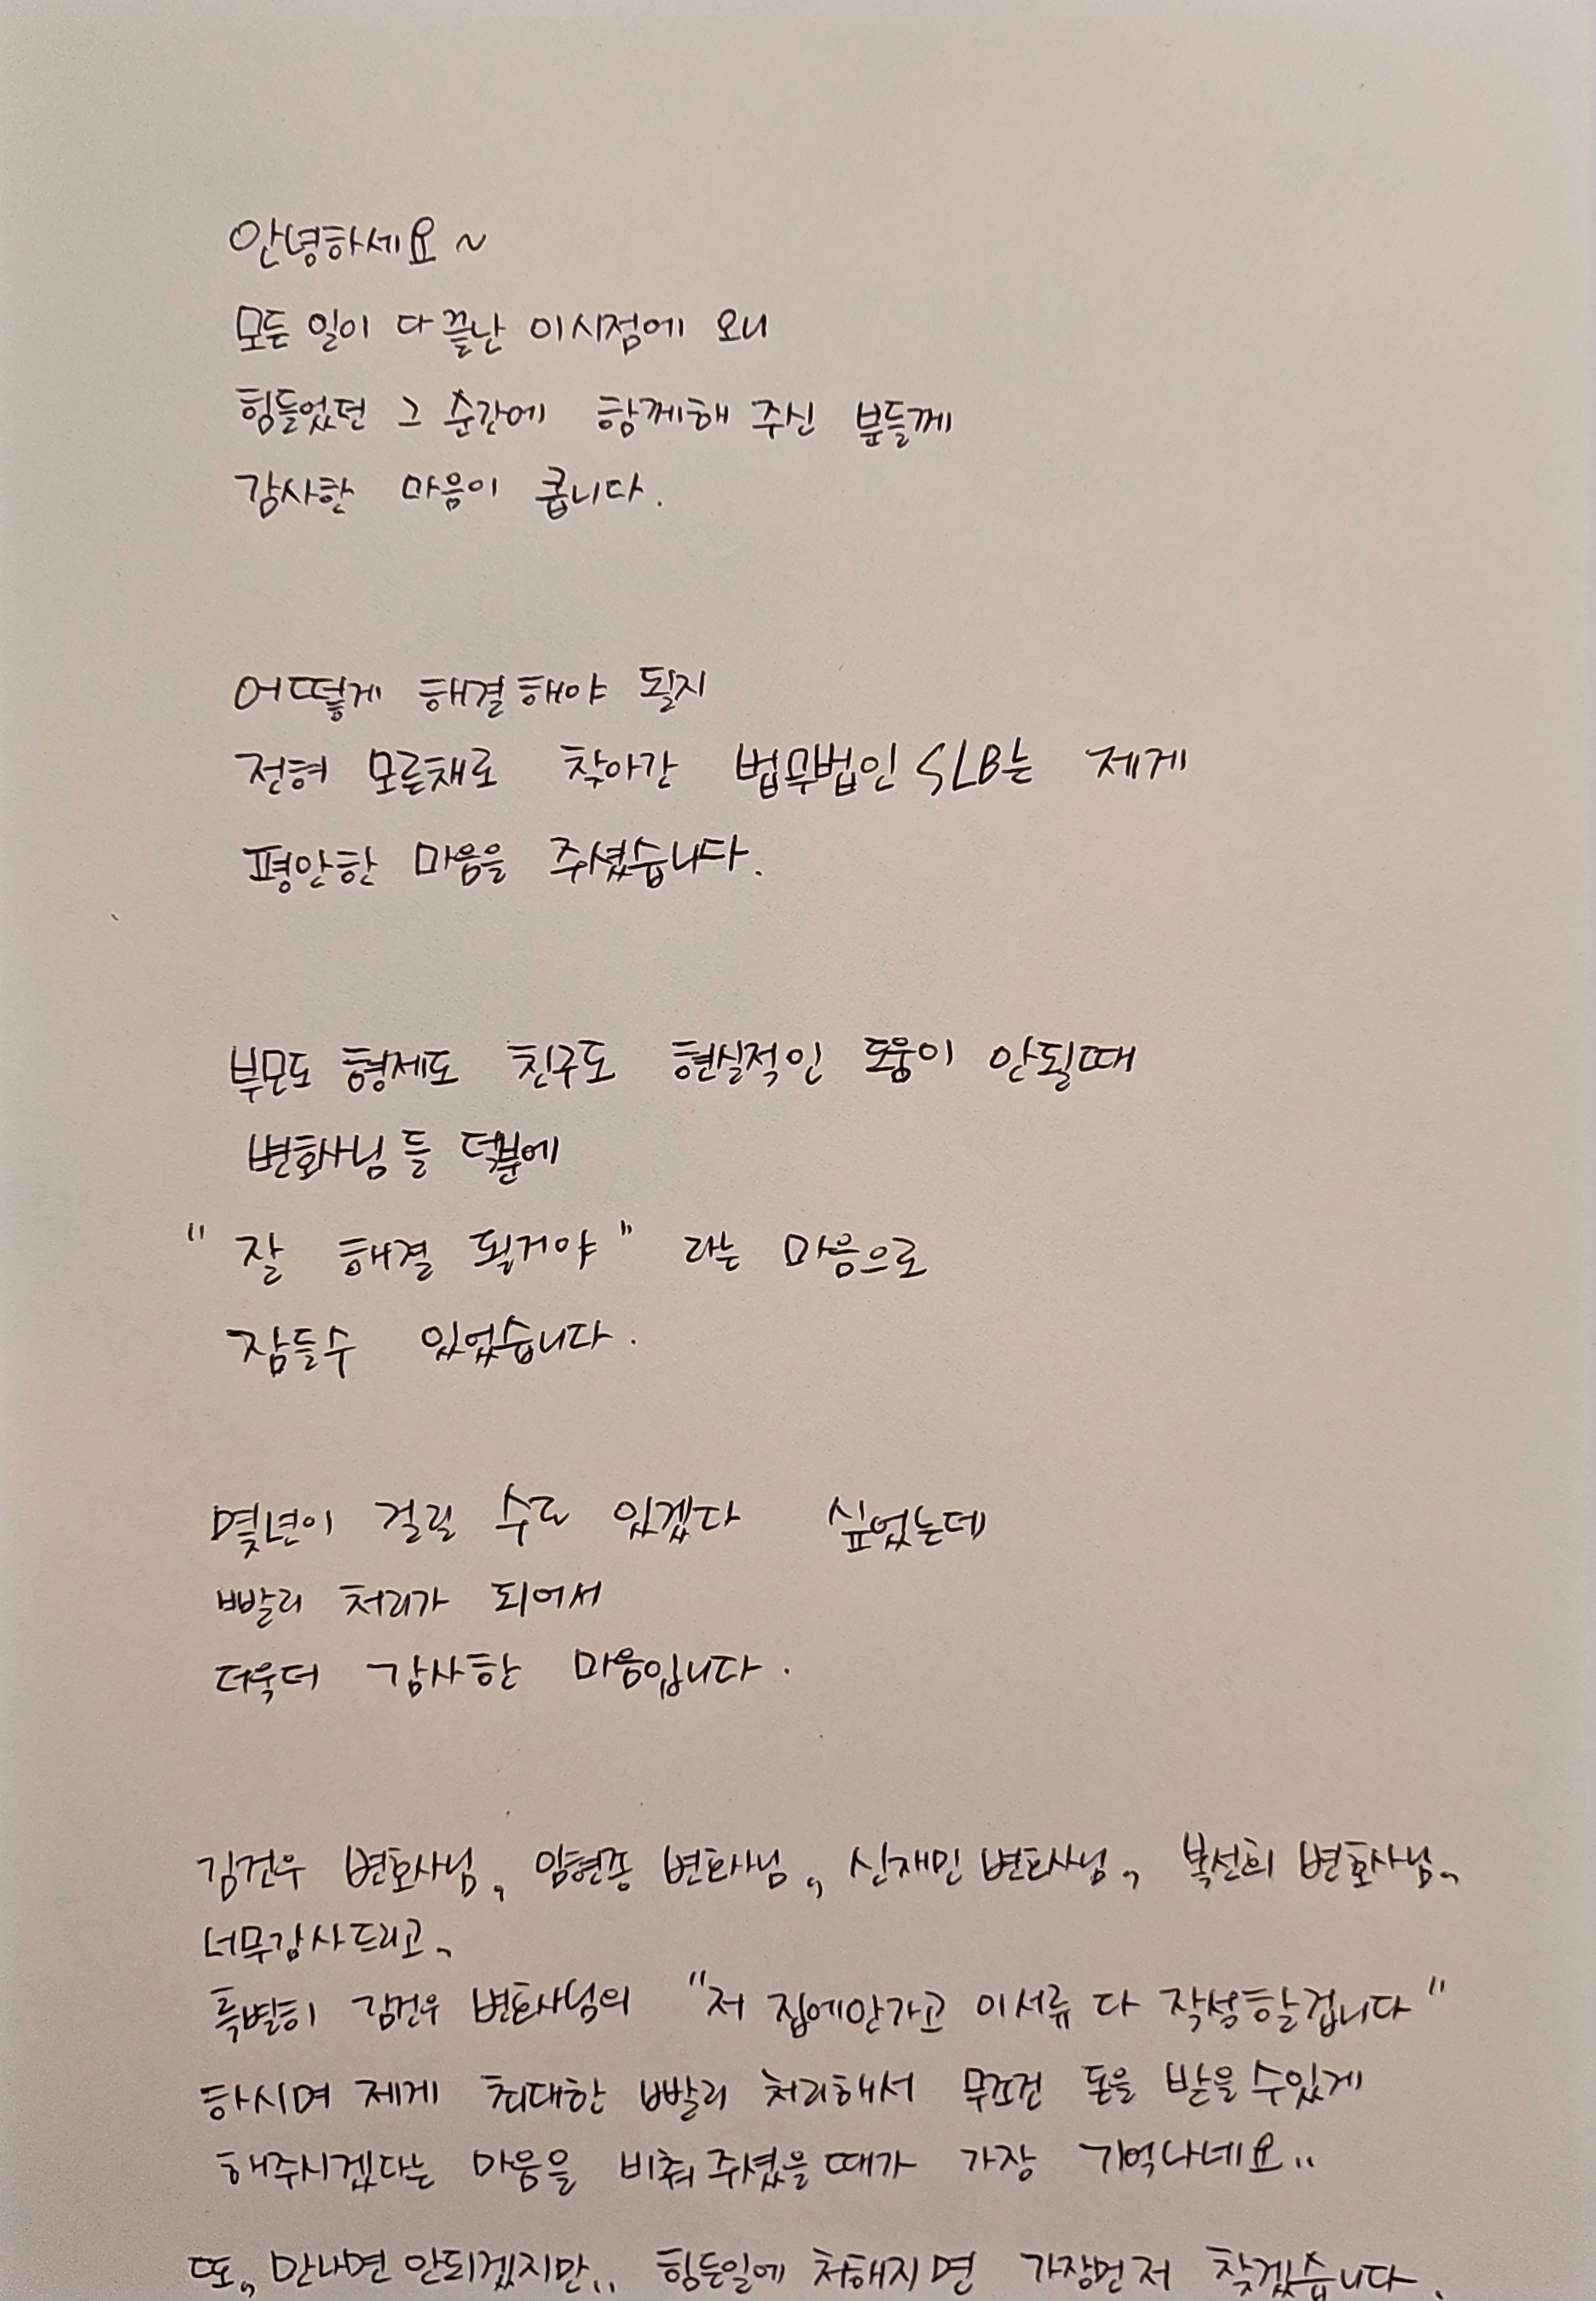 안녕하세요~
모든 일이 다 끝난 이시점에 오니
힘들었던 그 순간에 함께해 주신 분들께
감사한 마음이 큽니다.
어떻게 해결해야 될지
전혀 모른채로 찾아간 법무법인 SLB는 제게
평안한 마음을 주셨습니다.
부모도 형제도 친구도 현실적인 도움이 안될때
변호사님들 덕분에
"잘 해결 될거야" 라는 마음으로
잠들수 있었습니다.
몇년이 걸릴 수도 있겠다 싶었는데
빨리 처리가 되어서
더욱더 감사한 마음입니다.
김건우 변호사님, 임현종 변호사님, 신재민 변호사님, 복선희 변호사님,
너무감사드리고,
특별히 김건우 변호사님의 "저 집에안가고 이서류 다 작성할겁니다"
하시며 제게 최대한 빨리 처리해서 무조건 돈을 받을 수있게
해주시겠다는 마음을 비춰 주셨을때가 가장 기억나네요..
또, 만나면 안되겠지만.. 힘든일에 처해지면 가장먼저 찾겠습니다.